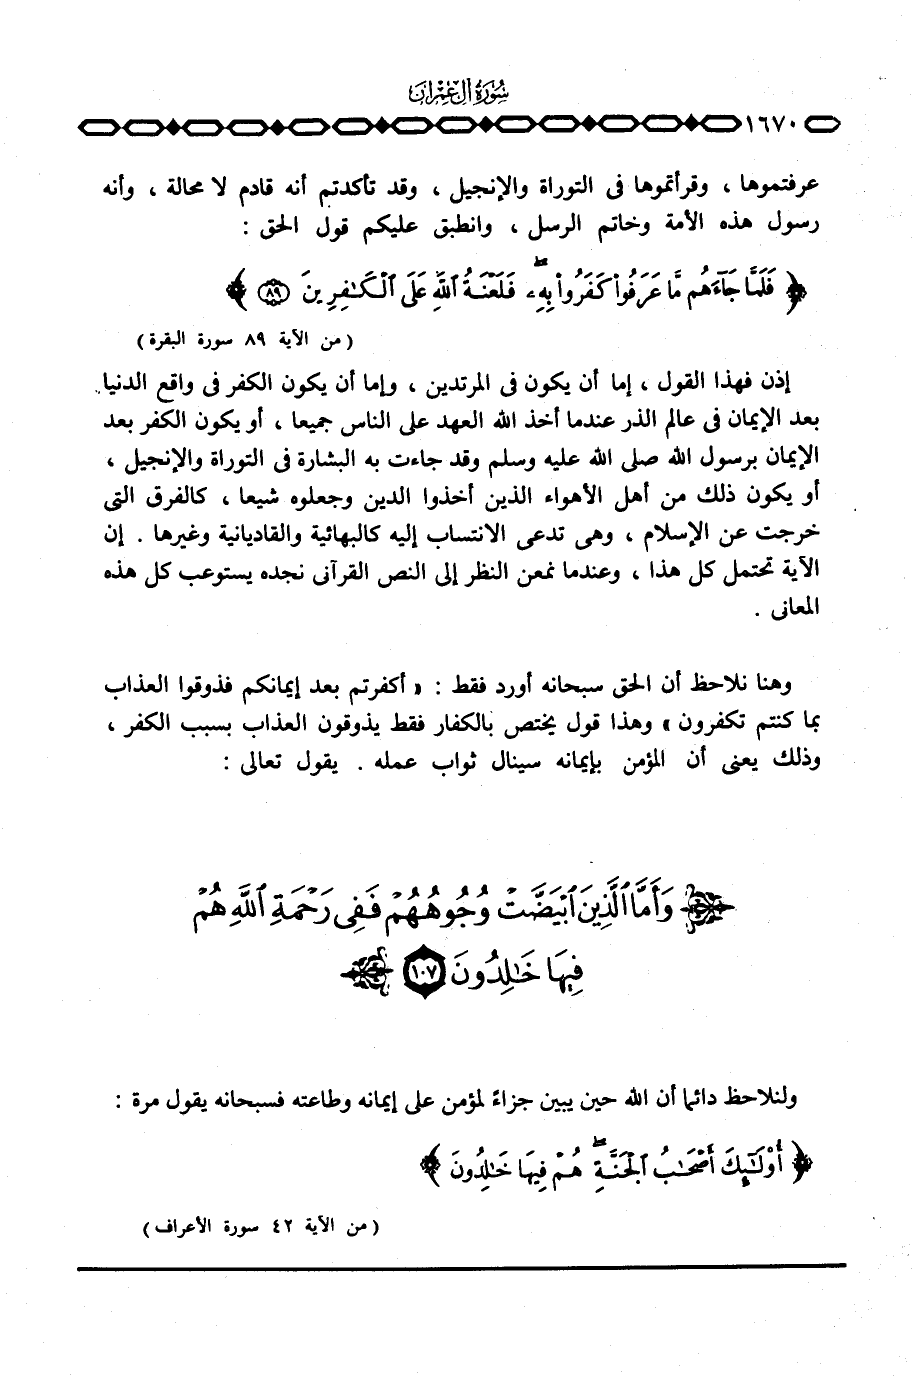 سُورَةُ آلِ عِمْرَان
١٦٧٠
عرفتموها ، وقرأتموها فى التوراة والإنجيل ، وقد تأكدتم أنه قادم لا محالة ، وأنه
رسول هذه الأمة وخاتم الرسل ، وانطبق عليكم قول الحق :
﴿ فَلَمَّا جَآءَهُم مَّا عَرَفُواْ كَفَرُواْ بِهِۦۚ فَلَعْنَةُ ٱللَّهِ عَلَى ٱلْكَٰفِرِينَ ٨٩ ﴾
( من الآية ٨٩ سورة البقرة )
إذن فهذا القول ، إما أن يكون فى المرتدين ، وإما أن يكون الكفر فى واقع الدنيا
بعد الإيمان فى عالم الذر عندما أخذ الله العهد على الناس جميعا ، أو يكون الكفر بعد
الإيمان برسول الله صلى الله عليه وسلم وقد جاءت به البشارة فى التوراة والإنجيل ،
أو يكون ذلك من أهل الأهواء الذين أخذوا الدين وجعلوه شيعا ، كالفرق التى
خرجت عن الإسلام ، وهى تدعى الانتساب إليه كالبهائية والقاديانية وغيرها . إن
الآية تحتمل كل هذا ، وعندما نمعن النظر إلى النص القرآنى نجده يستوعب كل هذه
المعانى .
وهنا نلاحظ أن الحق سبحانه أورد فقط : « أكفرتم بعد إيمانكم فذوقوا العذاب
بما كنتم تكفرون » وهذا قول يختص بالكفار فقط يذوقون العذاب بسبب الكفر ،
وذلك يعنى أن المؤمن بإيمانه سينال ثواب عمله . يقول تعالى :
وَأَمَّا ٱلَّذِينَ ٱبْيَضَّتْ وُجُوهُهُمْ فَفِى رَحْمَةِ ٱللَّهِ هُمْ
فِيهَا خَٰلِدُونَ ١٠٧
ولنلاحظ دائما أن الله حين يبين جزاءً لمؤمن على إيمانه وطاعته فسبحانه يقول مرة :
﴿ أُوْلَٰٓئِكَ أَصْحَٰبُ ٱلْجَنَّةِۖ هُمْ فِيهَا خَٰلِدُونَ ﴾
( من الآية ٤٢ سورة الأعراف )